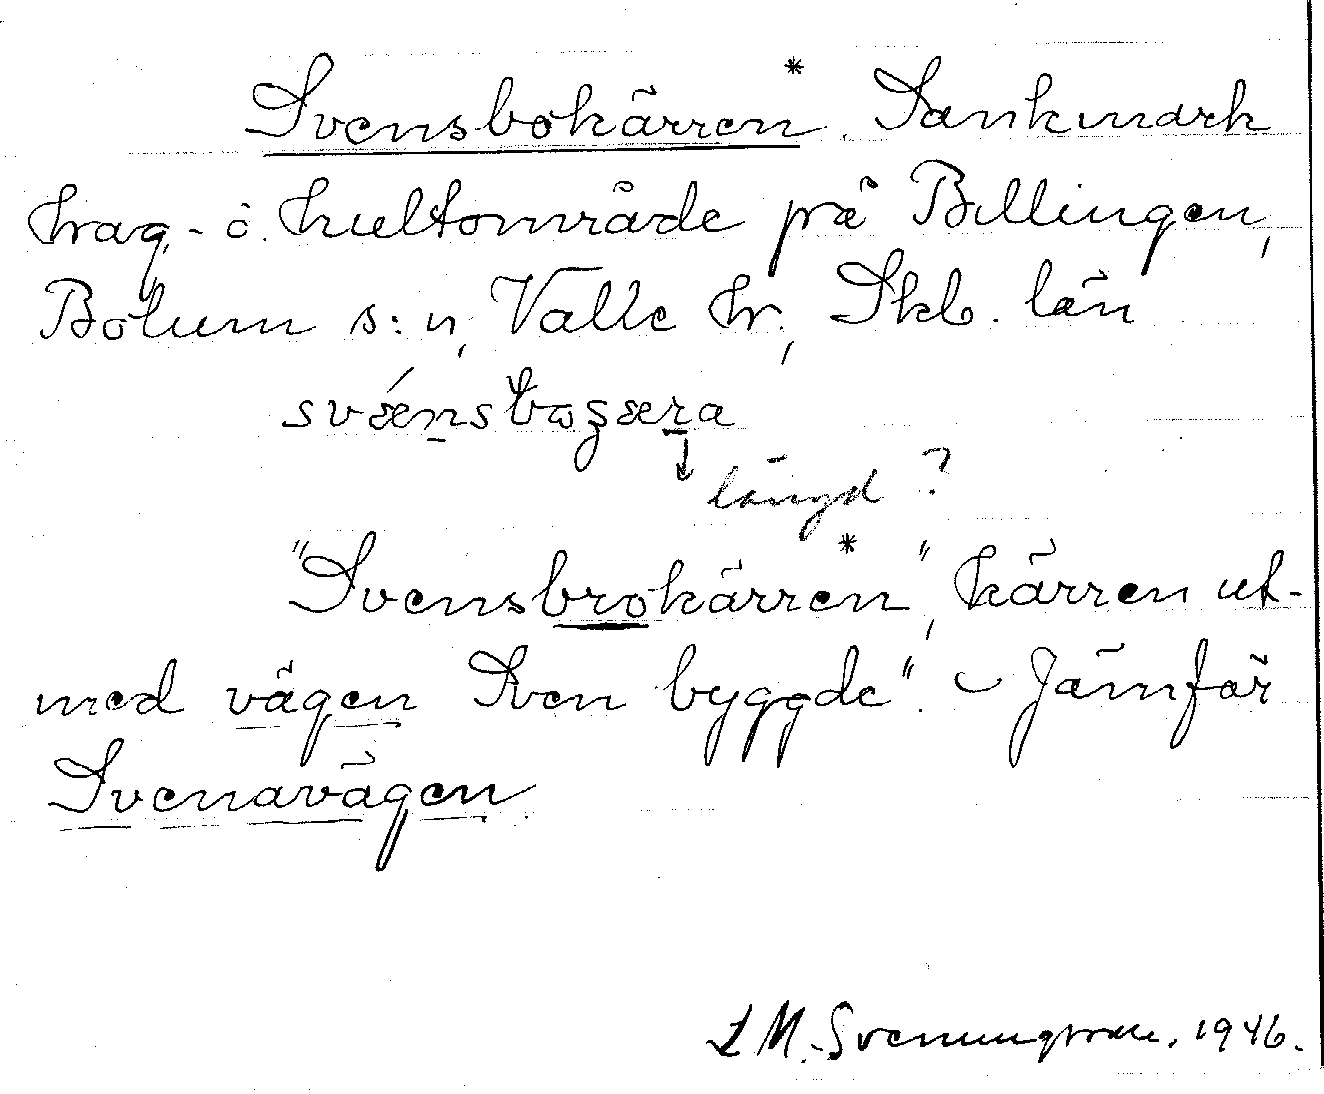 Svensbokärren*. Sankmark
hag- o. hultområde på Billingen,
Bolum s:n, Valle hr, Skb. län
svǽnsboʒæra
längd?
"Svensbrokärren*", kärren ut-
med vägen Sven byggde". – Jämför
Svenavägen
L M. Svenungsson. 1946.